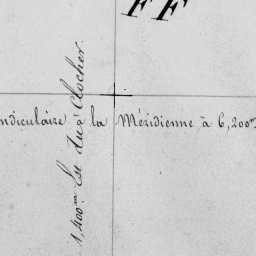 FF
ndiculaire à la Méridienne à 6,200m
1,400m Est du Clocher